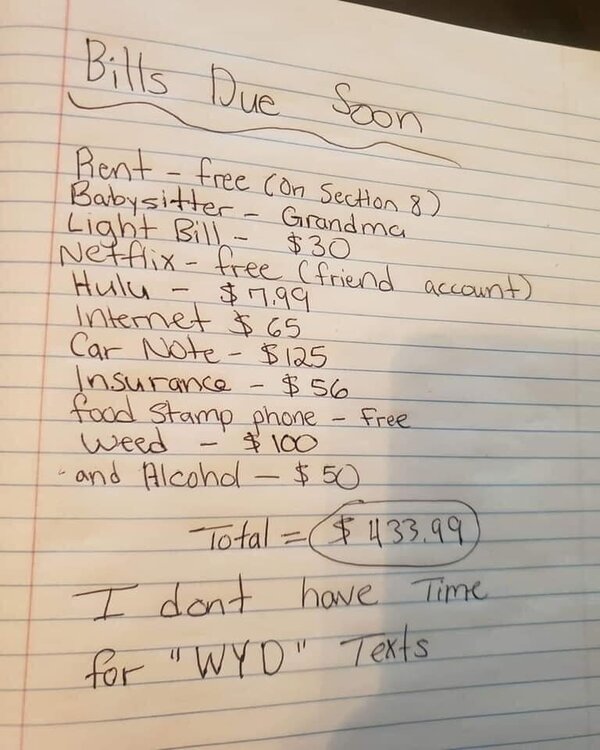 Bills Due Soon
Rent - free (on Section 8)
Babysitter - Grandma
Light Bill - $30
Netflix - free (friend account)
Hulu - $7.99
Internet $65
Car Note - $125
Insurance - $56
food Stamp phone - free
Weed - $100
- and Alcohol - $50
Total = $433.99
I dont have Time
for "WYD" Texts